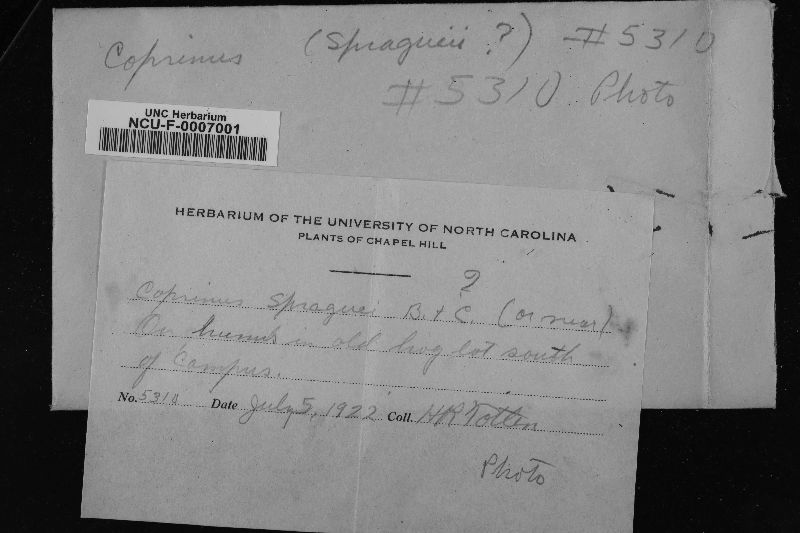 Coprinus (Spragueii ?) #5310
#5310 Photo
UNC Herbarium
NCU-F-0007001
HERBARIUM OF THE UNIVERSITY OF NORTH CAROLINA
PLANTS OF CHAPEL HILL
?
Coprinus Spraguei B. & C. (or near)
On humus in old hog lot south
of Campus.
No. 5310 Date July 5, 1922 Coll. HR Totten
Photo